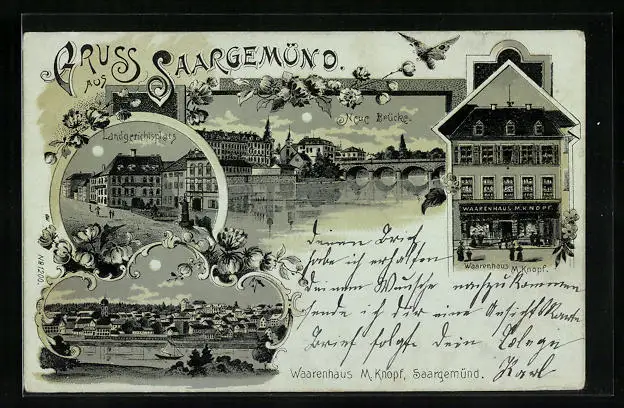 GRUSS AUS SAARGEMÜND.
Landgerichtsplatz
Neue Brücke.
WAARENHAUS M. KNOPF
Waarenhaus M. Knopf.
No 1200.
Deinen Brief
habe ich erhalten
deinem Wunsche nachzukommen
sende ich dir eine Ansicht Karte
Brief folgt dein
Karl
Waarenhaus M. Knopf, Saargemünd.